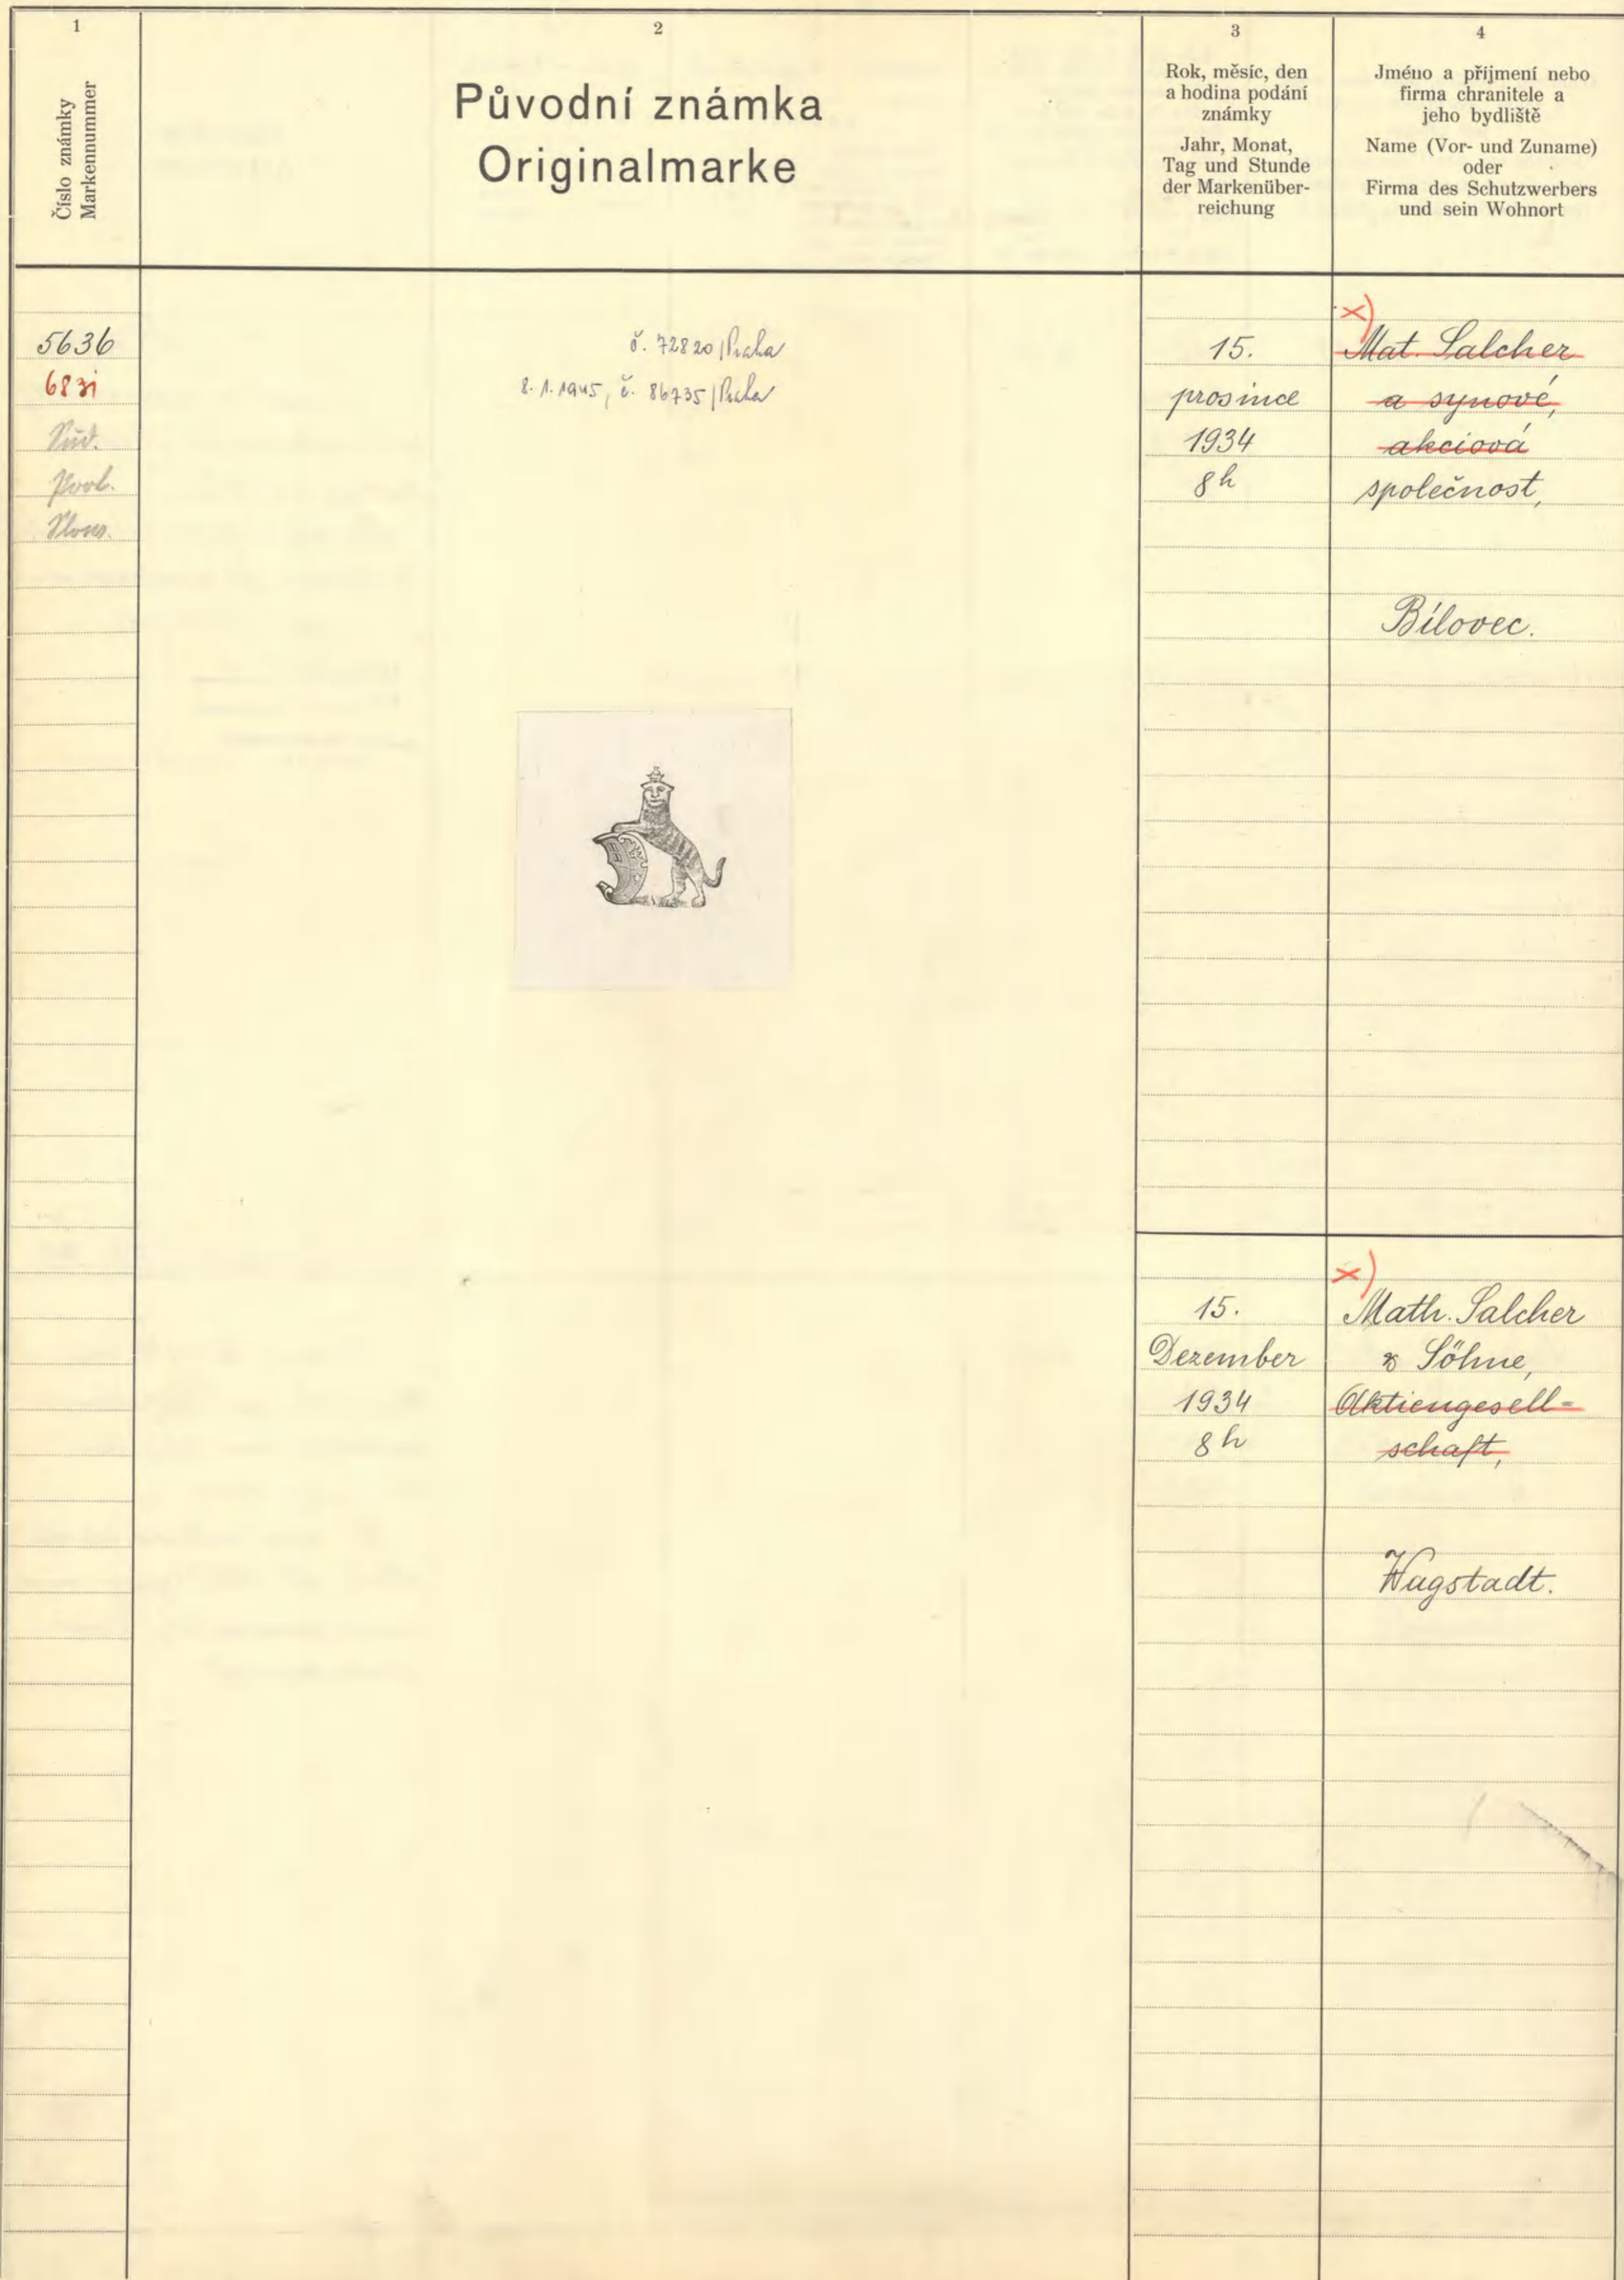 1
Číslo známky
Markennummer
2
Původní známka
Originalmarke
3
Rok, měsíc, den
a hodina podání
známky
Jahr, Monat,
Tag und Stunde
der Markenüber-
reichung
4
Jméno a příjmení nebo
firma chranitele a
jeho bydliště
Name (Vor- und Zuname)
oder
Firma des Schutzwerbers
und sein Wohnort
5636
č. 72820/Praha
8. 1. 1945, č. 86735/Praha
15.
prosince
1934
8h
x)
Mat. Salcher
a synové,
akciová
společnost,
Bílovec.
15.
Dezember
1934
8h
x)
Math. Salcher
& Söhne,
Aktiengesell-
schaft,
Wagstadt.